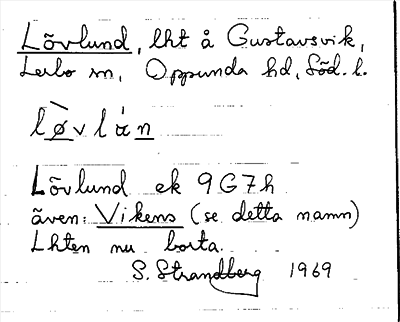 Lövlund, lht å Gustavsvik,
Lerbo sn, Oppunda hd, Söd. l.
lø̀vlán
Lövlund ek 9G7h
även: Vikens (se detta namn)
Lhten nu borta.
S. Strandberg 1969